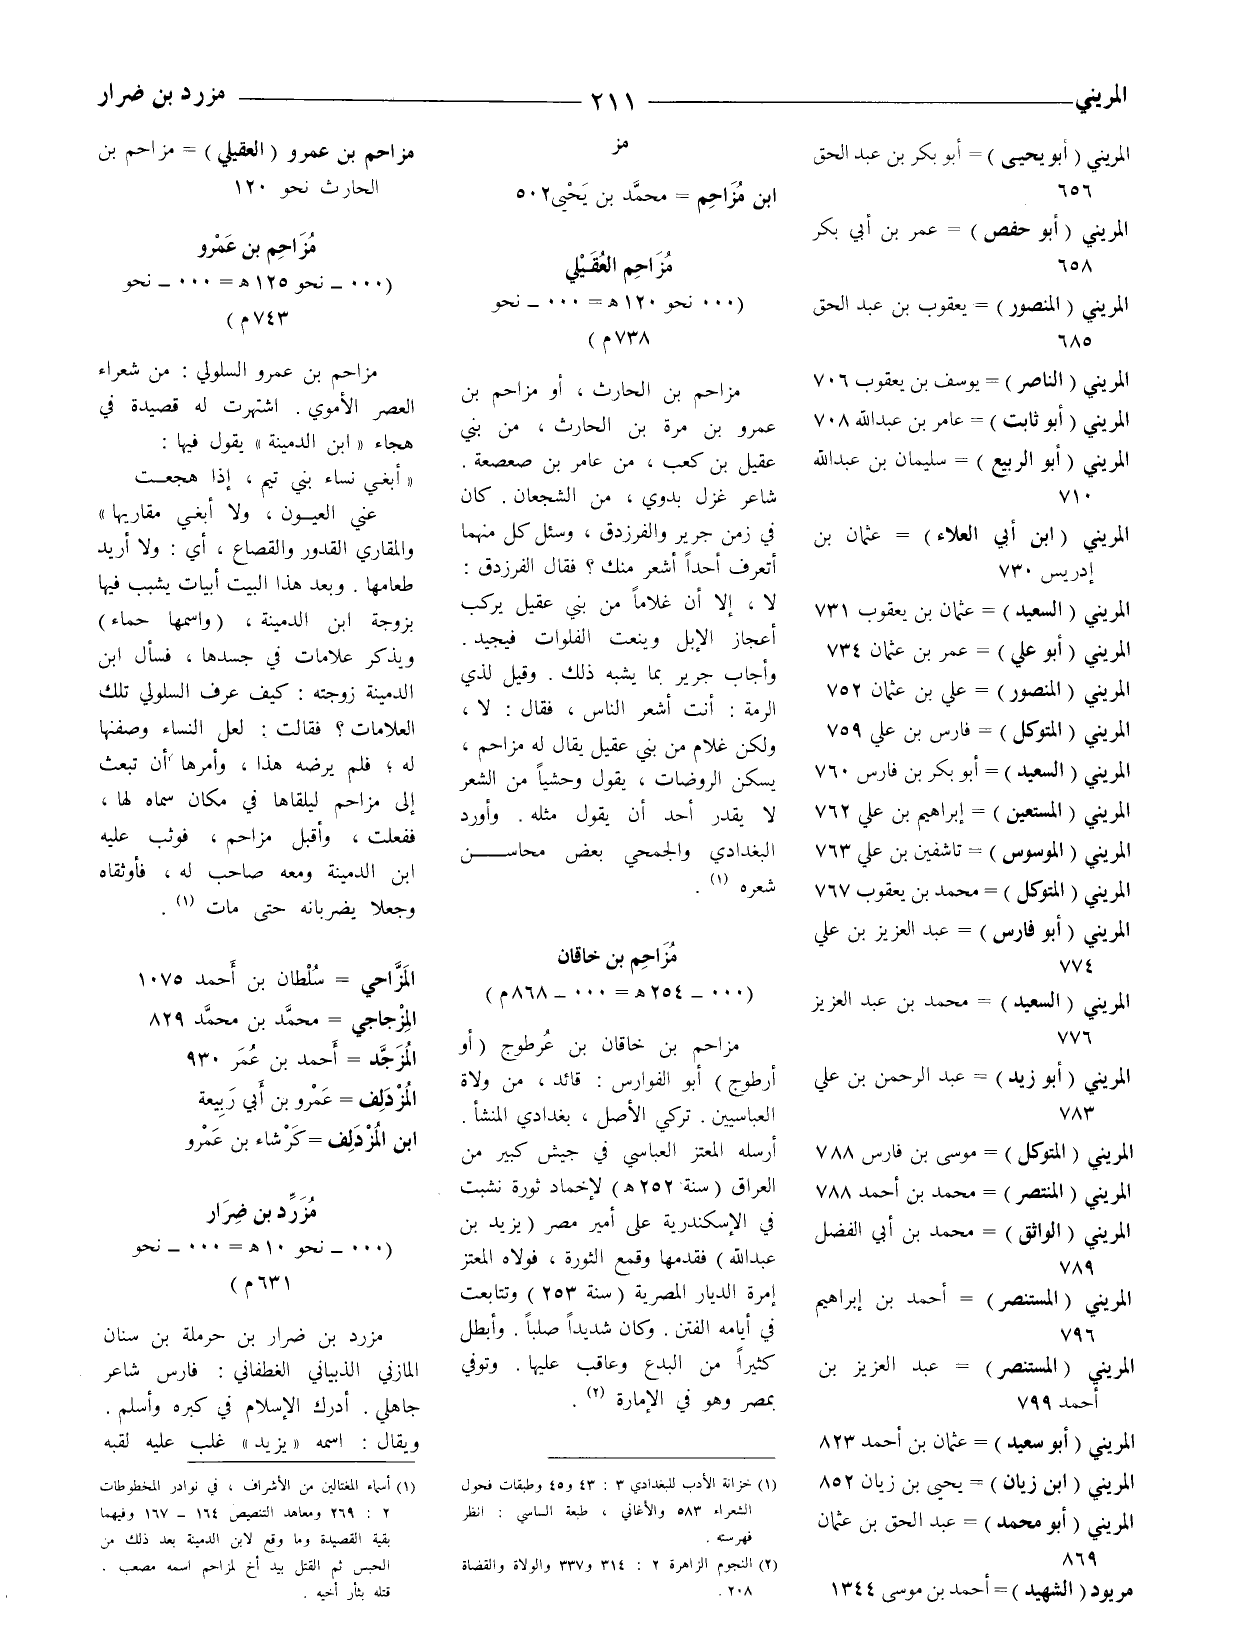 المريني ــــ ٢١١ ــــ مزرد بن ضرار
المريني ( أبو يحيى ) = أبو بكر بن عبد الحق
٦٥٦
المريني ( أبو حفص ) = عمر بن أبي بكر
٦٥٨
المريني ( المنصور ) = يعقوب بن عبد الحق
٦٨٥
المريني ( الناصر ) = يوسف بن يعقوب ٧٠٦
المريني ( أبو ثابت ) = عامر بن عبدالله ٧٠٨
المريني ( أبو الربيع ) = سليمان بن عبدالله
٧١٠
المريني ( ابن أبي العلاء ) = عثمان بن
إدريس ٧٣٠
المريني ( السعيد ) = عثمان بن يعقوب ٧٣١
المريني ( أبو علي ) = عمر بن عثمان ٧٣٤
المريني ( المنصور ) = علي بن عثمان ٧٥٢
المريني ( المتوكل ) = فارس بن علي ٧٥٩
المريني ( السعيد ) = أبو بكر بن فارس ٧٦٠
المريني ( المستعين ) = إبراهيم بن علي ٧٦٢
المريني ( الموسوس ) = تاشفين بن علي ٧٦٣
المريني ( المتوكل ) = محمد بن يعقوب ٧٦٧
المريني ( أبو فارس ) = عبد العزيز بن علي
٧٧٤
المريني ( السعيد ) = محمد بن عبد العزيز
٧٧٦
المريني ( أبو زيد ) = عبد الرحمن بن علي
٧٨٣
المريني ( المتوكل ) = موسى بن فارس ٧٨٨
المريني ( المنتصر ) = محمد بن أحمد ٧٨٨
المريني ( الواثق ) = محمد بن أبي الفضل
٧٨٩
المريني ( المستنصر ) = أحمد بن إبراهيم
٧٩٦
المريني ( المستنصر ) = عبد العزيز بن
أحمد ٧٩٩
المريني ( أبو سعيد ) = عثمان بن أحمد ٨٢٣
المريني ( ابن زيان ) = يحيى بن زيان ٨٥٢
المريني ( أبو محمد ) = عبد الحق بن عثمان
٨٦٩
مريود ( الشهيد ) = أحمد بن موسى ١٣٤٤
مز
ابن مُزَاحِم = محمَّد بن يَحْيى ٥٠٢
مُزَاحِم العُقَيْلي
(٠٠٠ نحو ١٢٠ هـ = ٠٠٠ ـ نحو
٧٣٨ م )
مزاحم بن الحارث ، أو مزاحم بن
عمرو بن مرة بن الحارث ، من بني
عقيل بن كعب ، من عامر بن صعصعة .
شاعر غزل بدوي ، من الشجعان . كان
في زمن جرير والفرزدق ، وسئل كل منهما
أتعرف أحداً أشعر منك ؟ فقال الفرزدق :
لا ، إلا أن غلاماً من بني عقيل يركب
أعجاز الإبل وينعت الفلوات فيجيد .
وأجاب جرير بما يشبه ذلك . وقيل لذي
الرمة : أنت أشعر الناس ، فقال : لا ،
ولكن غلام من بني عقيل يقال له مزاحم ،
يسكن الروضات ، يقول وحشياً من الشعر
لا يقدر أحد أن يقول مثله . وأورد
البغدادي والجمحي بعض محاسـن
شعره (١) .
مُزَاحِم بن خاقان
(٠٠٠ ـ ٢٥٤ هـ = ٠٠٠ ـ ٨٦٨ م )
مزاحم بن خاقان بن عُرطوج ( أو
أرطوج ) أبو الفوارس : قائد ، من ولاة
العباسيين . تركي الأصل ، بغدادي المنشأ .
أرسله المعتز العباسي في جيش كبير من
العراق ( سنة ٢٥٢ هـ ) لإخماد ثورة نشبت
في الإسكندرية على أمير مصر ( يزيد بن
عبدالله ) فقدمها وقمع الثورة ، فولاه المعتز
إمرة الديار المصرية ( سنة ٢٥٣ ) وتتابعت
في أيامه الفتن . وكان شديداً صلباً . وأبطل
كثيراً من البدع وعاقب عليها . وتوفي
بمصر وهو في الإمارة (٢) .
(١) خزانة الأدب للبغدادي ٣ : ٤٣ و٤٥ وطبقات فحول
الشعراء ٥٨٣ والأغاني ، طبعة الساسي : انظر
فهرسته .
(٢) النجوم الزاهرة ٢ : ٣١٤ و٣٣٧ والولاة والقضاة
٢٠٨ .
مزاحم بن عمرو ( العقيلي ) = مزاحم بن
الحارث نحو ١٢٠
مُزَاحِم بن عَمْرو
(٠٠٠ ـ نحو ١٢٥ هـ = ٠٠٠ ـ نحو
٧٤٣ م )
مزاحم بن عمرو السلولي : من شعراء
العصر الأموي . اشتهرت له قصيدة في
هجاء « ابن الدمينة » يقول فيها :
« أبغي نساء بني تيم ، إذا هجعـت
عني العيـون ، ولا أبغي مقاريها »
والمقاري القدور والقصاع ، أي : ولا أريد
طعامها . وبعد هذا البيت أبيات يشبب فيها
بزوجة ابن الدمينة ، ( واسمها حماء )
ويذكر علامات في جسدها ، فسأل ابن
الدمينة زوجته : كيف عرف السلولي تلك
العلامات ؟ فقالت : لعل النساء وصفنها
له ؛ فلم يرضه هذا ، وأمرها أن تبعث
إلى مزاحم ليلقاها في مكان سماه لها ،
ففعلت ، وأقبل مزاحم ، فوثب عليه
ابن الدمينة ومعه صاحب له ، فأوثقاه
وجعلا يضربانه حتى مات (١) .
المَزَّاحي = سُلْطان بن أَحمد ١٠٧٥
المِزْجاجي = محمَّد بن محمَّد ٨٢٩
المُزَجَّد = أَحمد بن عُمَر ٩٣٠
المُزْدَلِف = عَمْرو بن أَبي رَبِيعة
ابن المُزْدَلِف = كَرْشاء بن عَمْرو
مُزَرِّد بن ضِرَار
(٠٠٠ ـ نحو ١٠ هـ = ٠٠٠ ـ نحو
٦٣١ م )
مزرد بن ضرار بن حرملة بن سنان
المازني الذبياني الغطفاني : فارس شاعر
جاهلي . أدرك الإسلام في كبره وأسلم .
ويقال : اسمه « يزيد » غلب عليه لقبه
(١) أسماء المغتالين من الأشراف ، في نوادر المخطوطات
٢ : ٢٦٩ ومعاهد التنصيص ١٦٤ ـ ١٦٧ وفيهما
بقية القصيدة وما وقع لابن الدمينة بعد ذلك من
الحبس ثم القتل بيد أخ لمزاحم اسمه مصعب .
قتله بثأر أخيه .